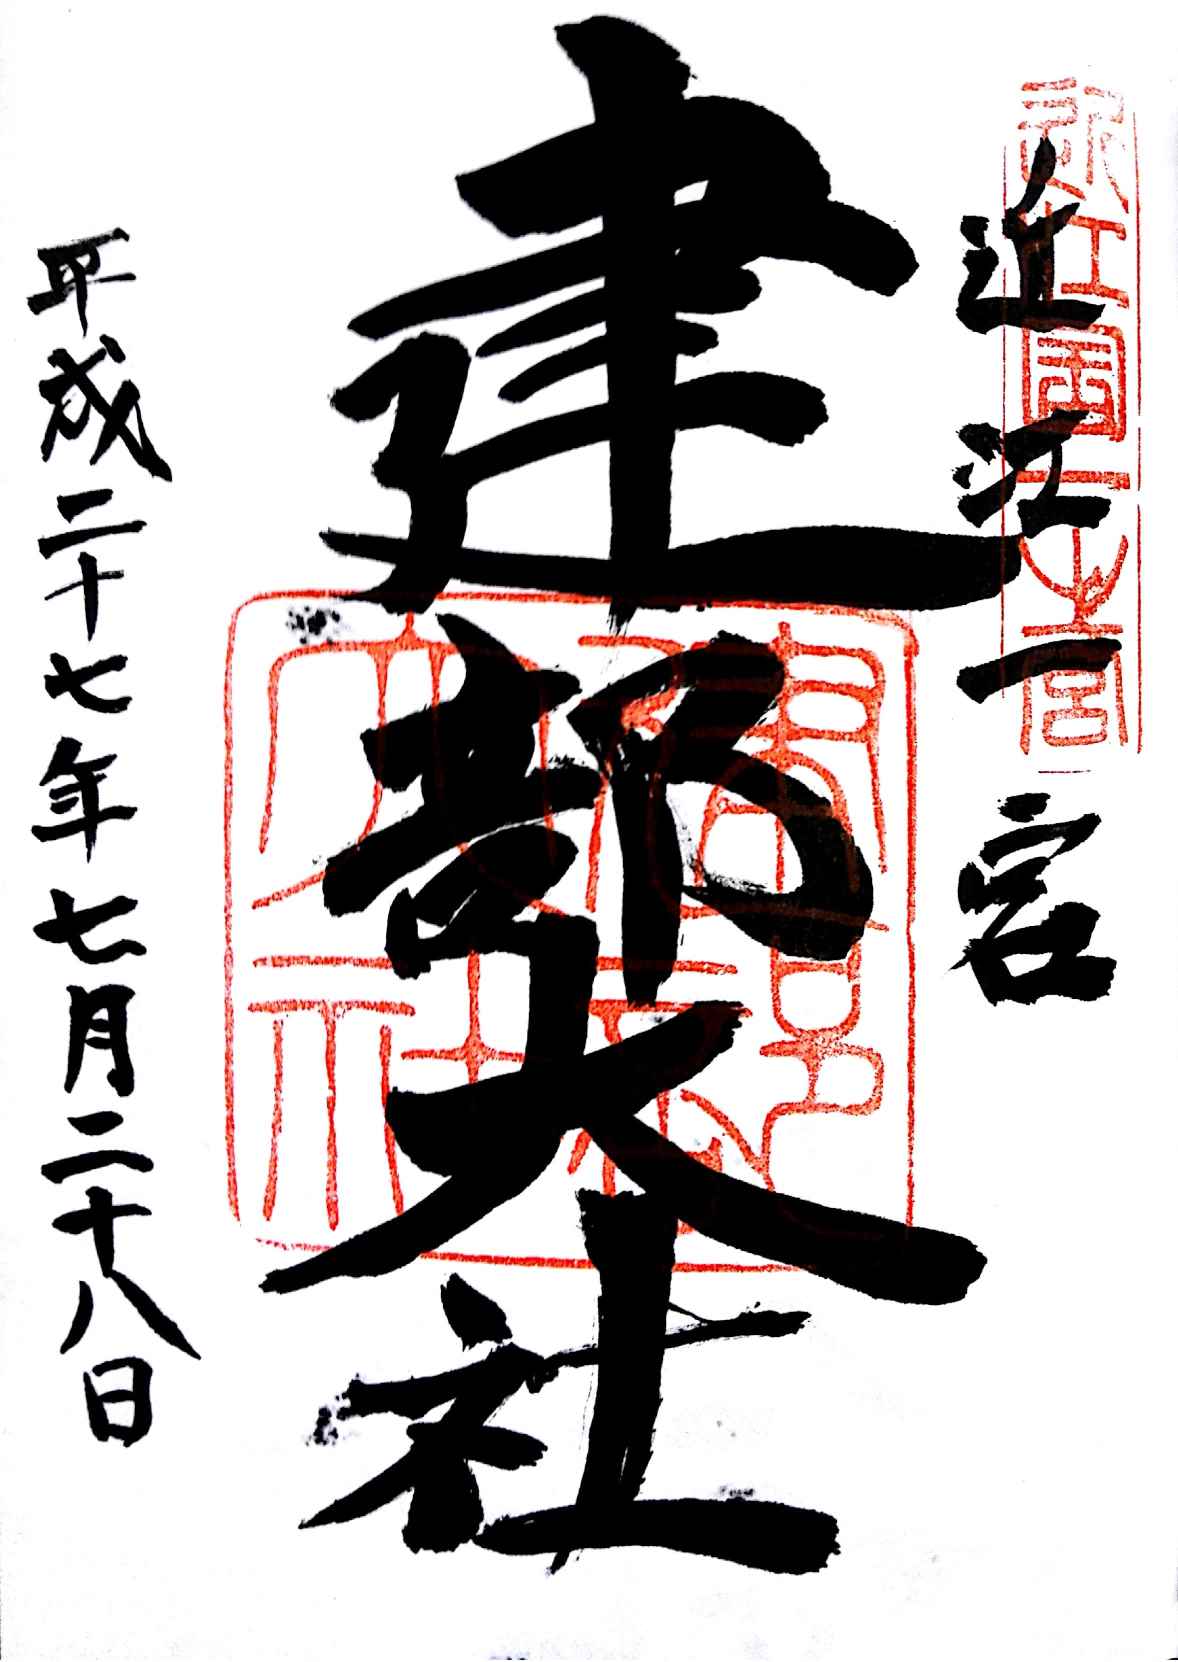 近江一宮
近江国一之宮
建部大社
平成二十七年七月二十八日